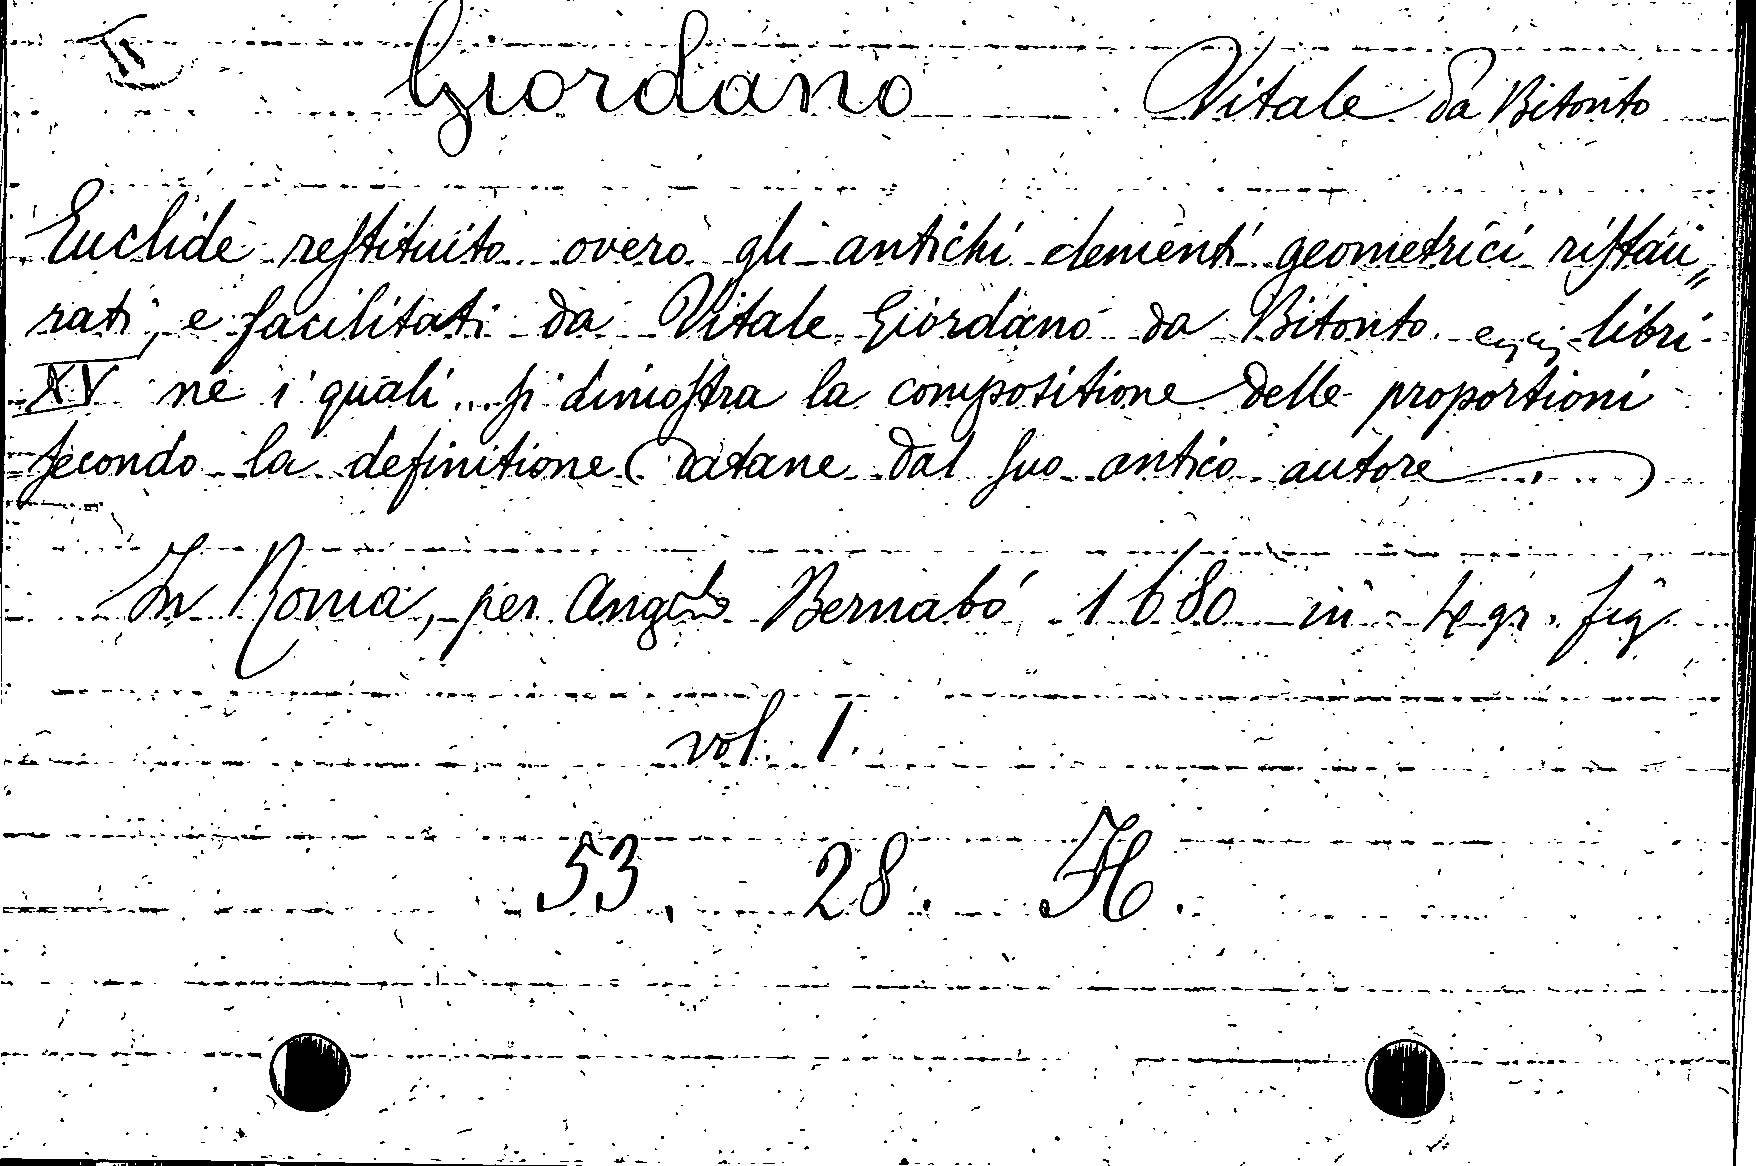 Giordano Vitale da Bitonto
Euclide reſtituito overo gli antichi elementi geometrici riſtau„
rati, e facilitati da Vitale Giordano da Bitonto libri
XV ne i quali ſi dimoſtra la compositione delle proportioni
ſecondo la definitione (datane dal ſuo antico autore)
In Roma, per Angelo Bernabó 1680 in 4 gr. fig
vol. 1.
53. 28. H.